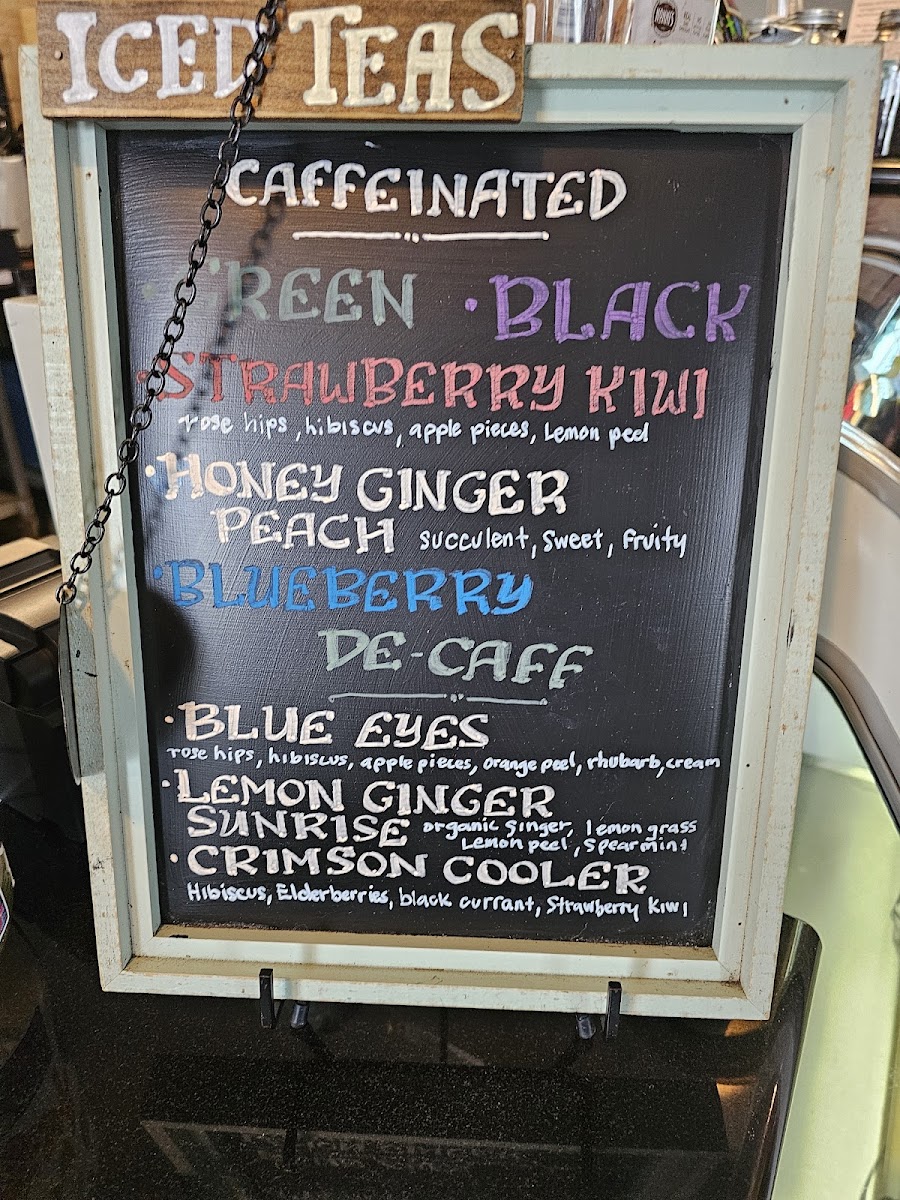 ICED TEAS
CAFFEINATED
·GREEN ·BLACK
·STRAWBERRY KIWI
rose hips, hibiscus, apple pieces, lemon peel
·HONEY GINGER
PEACH succulent, sweet, fruity
·BLUEBERRY
DE-CAFF
·BLUE EYES
rose hips, hibiscus, apple pieces, orange peel, rhubarb, cream
·LEMON GINGER
SUNRISE organic ginger, lemon grass
Lemon peel, spearmint
·CRIMSON COOLER
Hibiscus, Elderberries, black currant, Strawberry Kiwi